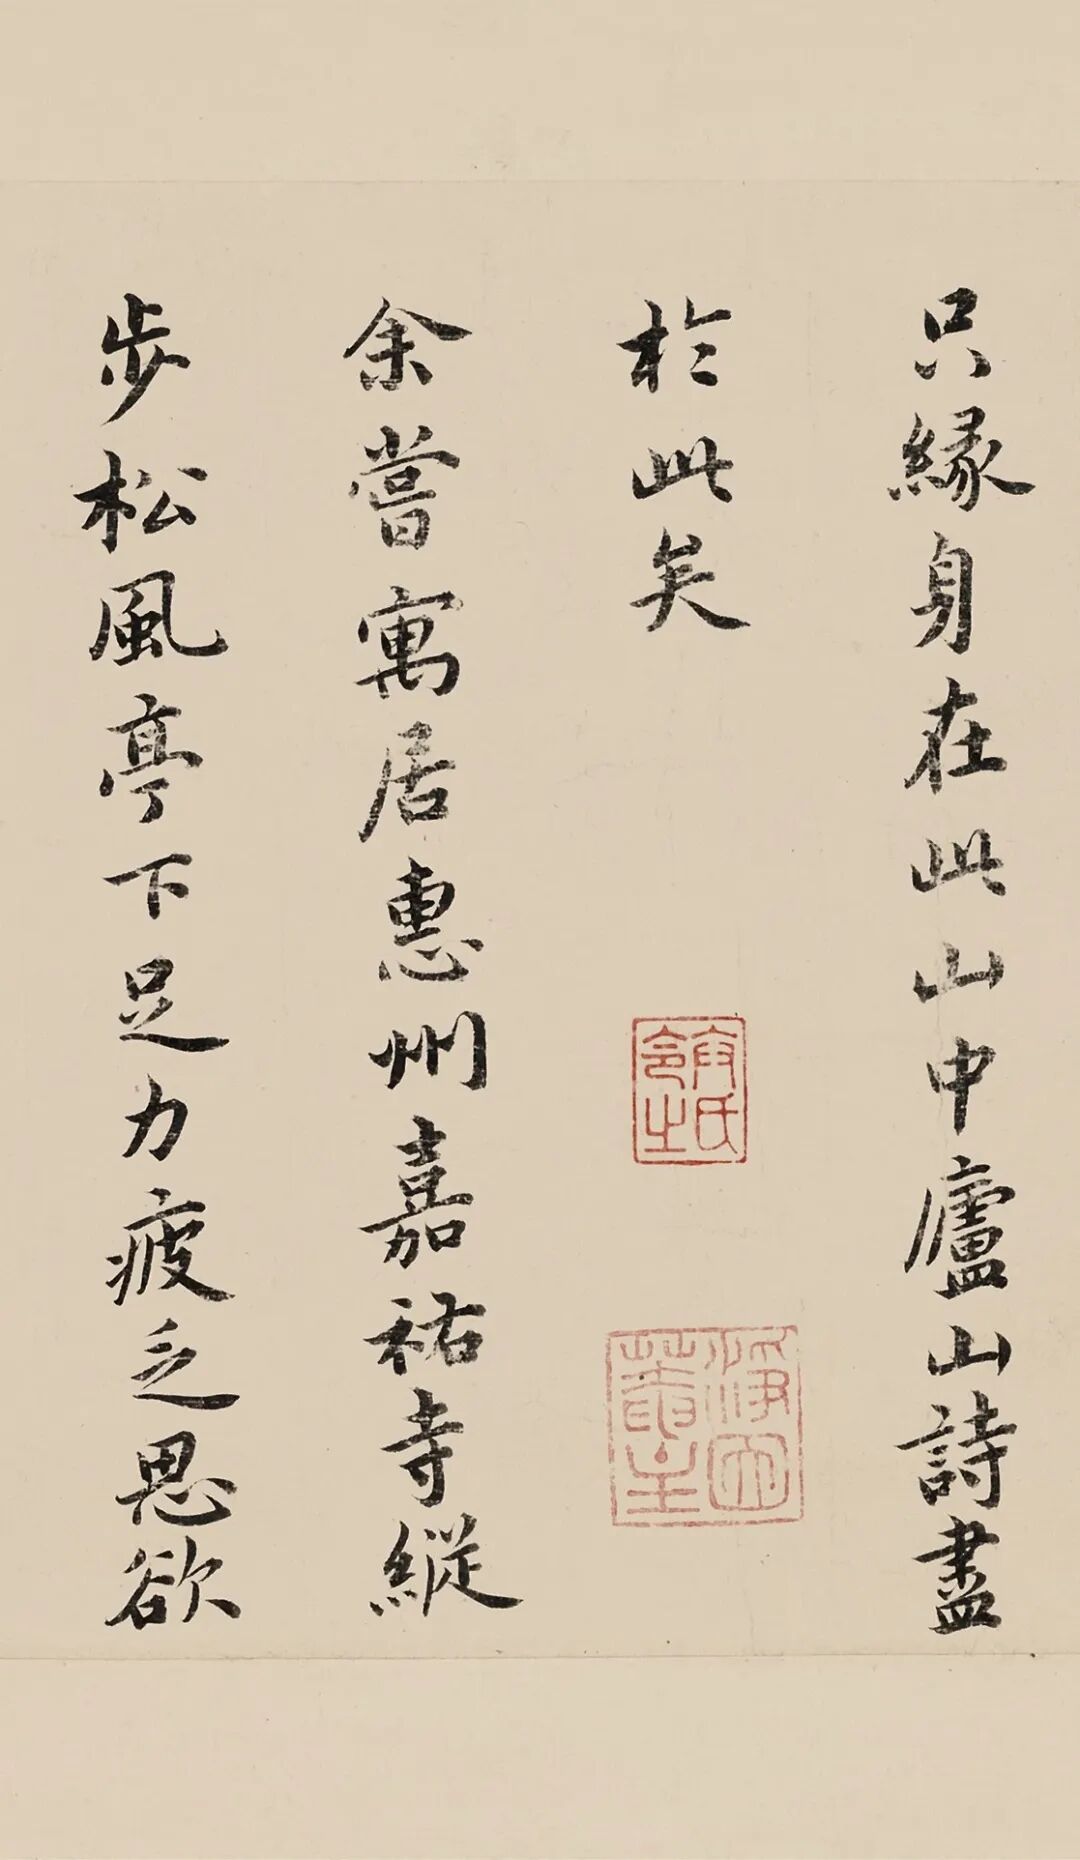 只緣身在此山中廬山詩盡
於此矣
余嘗寓居惠州嘉祐寺縱
步松風亭下足力疲乏思欲